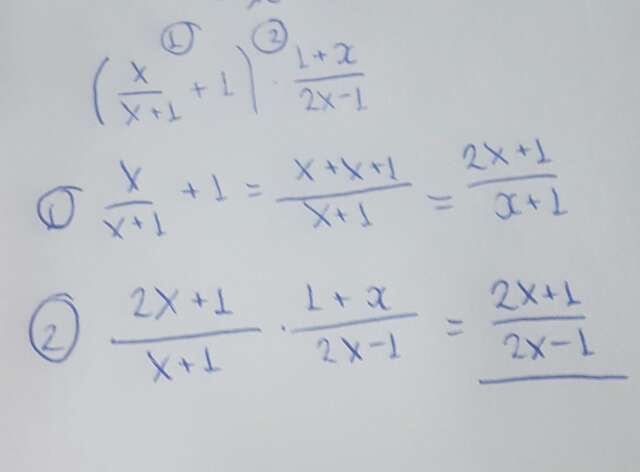 ① ②
(x/(x+1) + 1) · (1+x)/(2x-1)
① x/(x+1) + 1 = (x+x+1)/(x+1) = (2x+1)/(x+1)
② (2x+1)/(x+1) · (1+x)/(2x-1) = (2x+1)/(2x-1)